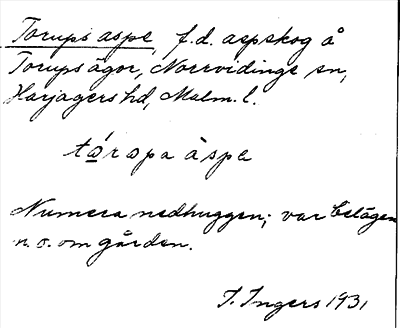 Torups aspe, f.d. aspskog å
Torups ägor, Norrvidinge sn,
Harjagers hd, Malm. l.
tɷ́rɷpa àspe
Numera nedhuggen; var belägen
n. ö. om gården.
I. Ingers 1931